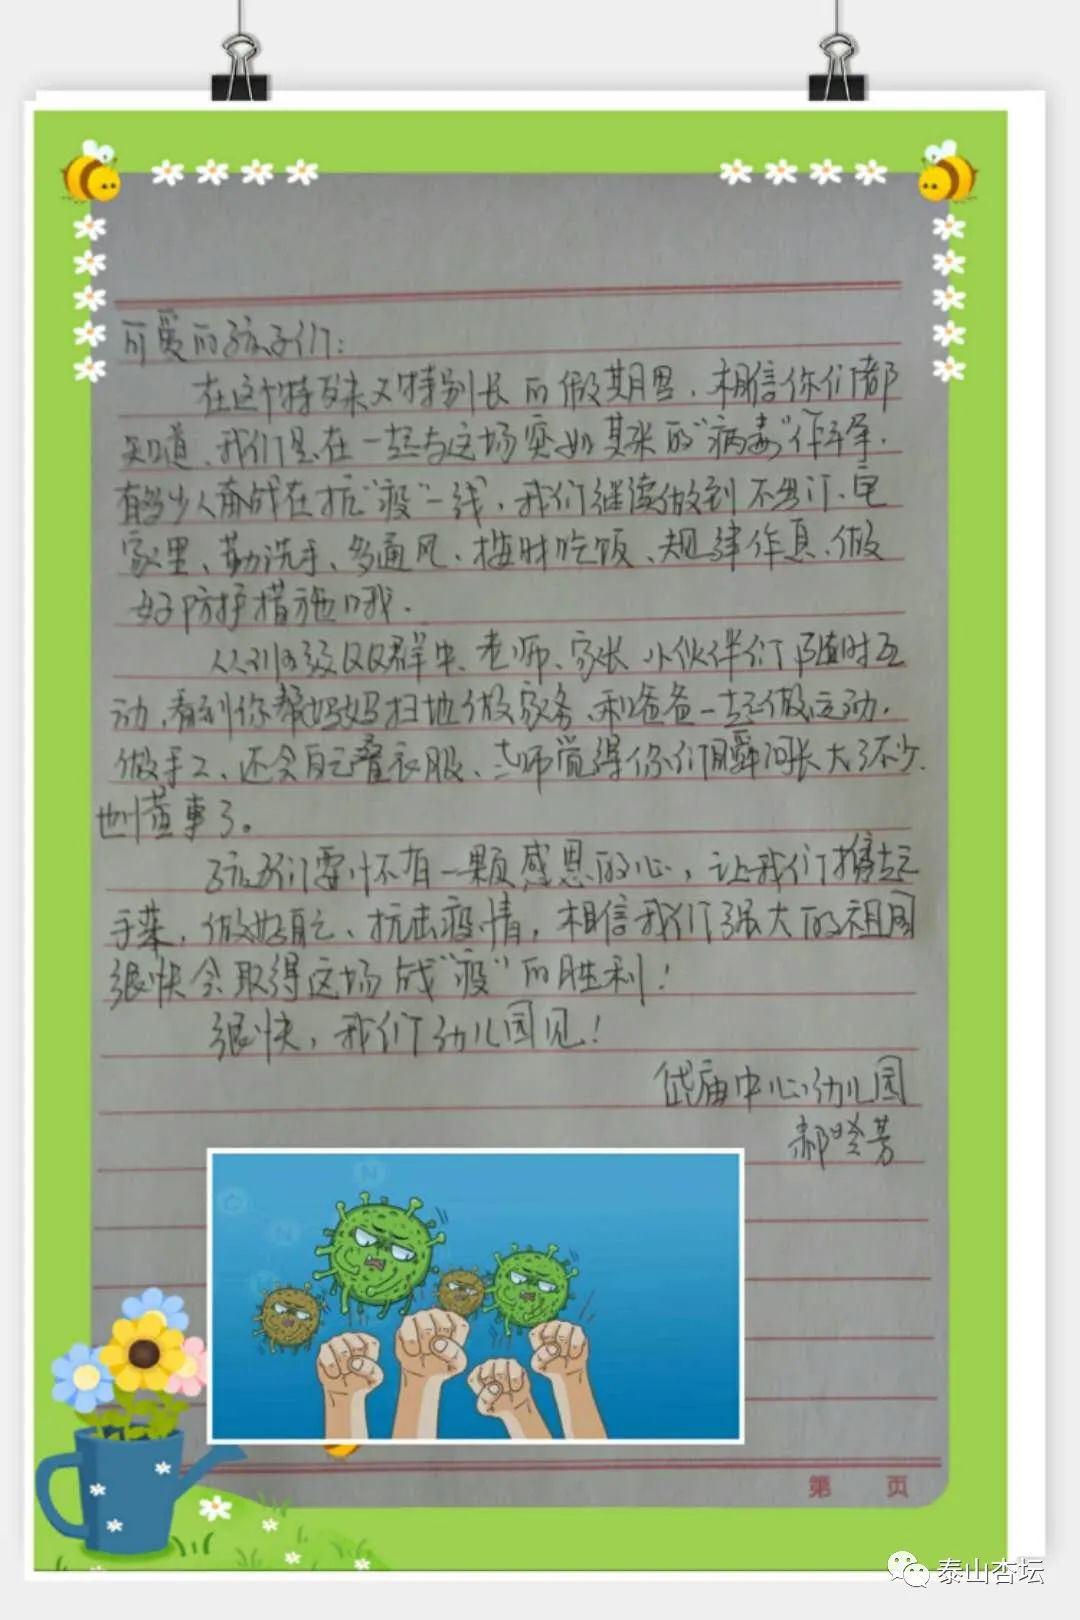 可爱的孩子们:
在这个特殊又特别长的假期里,相信你们都
知道,我们是在一起与这场突如其来的“病毒”作斗争.
有多少人奋战在抗“疫”一线,我们继续做到不出门、宅
家里、勤洗手、多通风、按时吃饭、规律作息、做
好防护措施哦.
从班级QQ群中、老师、家长、小伙伴们随时互
动,看到你帮妈妈扫地做家务、和爸爸一起做运动.
做手工、还会自己叠衣服、老师觉得你们瞬间长大了不少.
也懂事了。
孩子们要怀有一颗感恩的心,让我们携起
手来,做好自己、抗击疫情,相信我们强大的祖国
很快会取得这场战“疫”的胜利!
很快,我们幼儿园见!
岱庙中心幼儿园
郝 芳
N
N
第 页
泰山杏坛